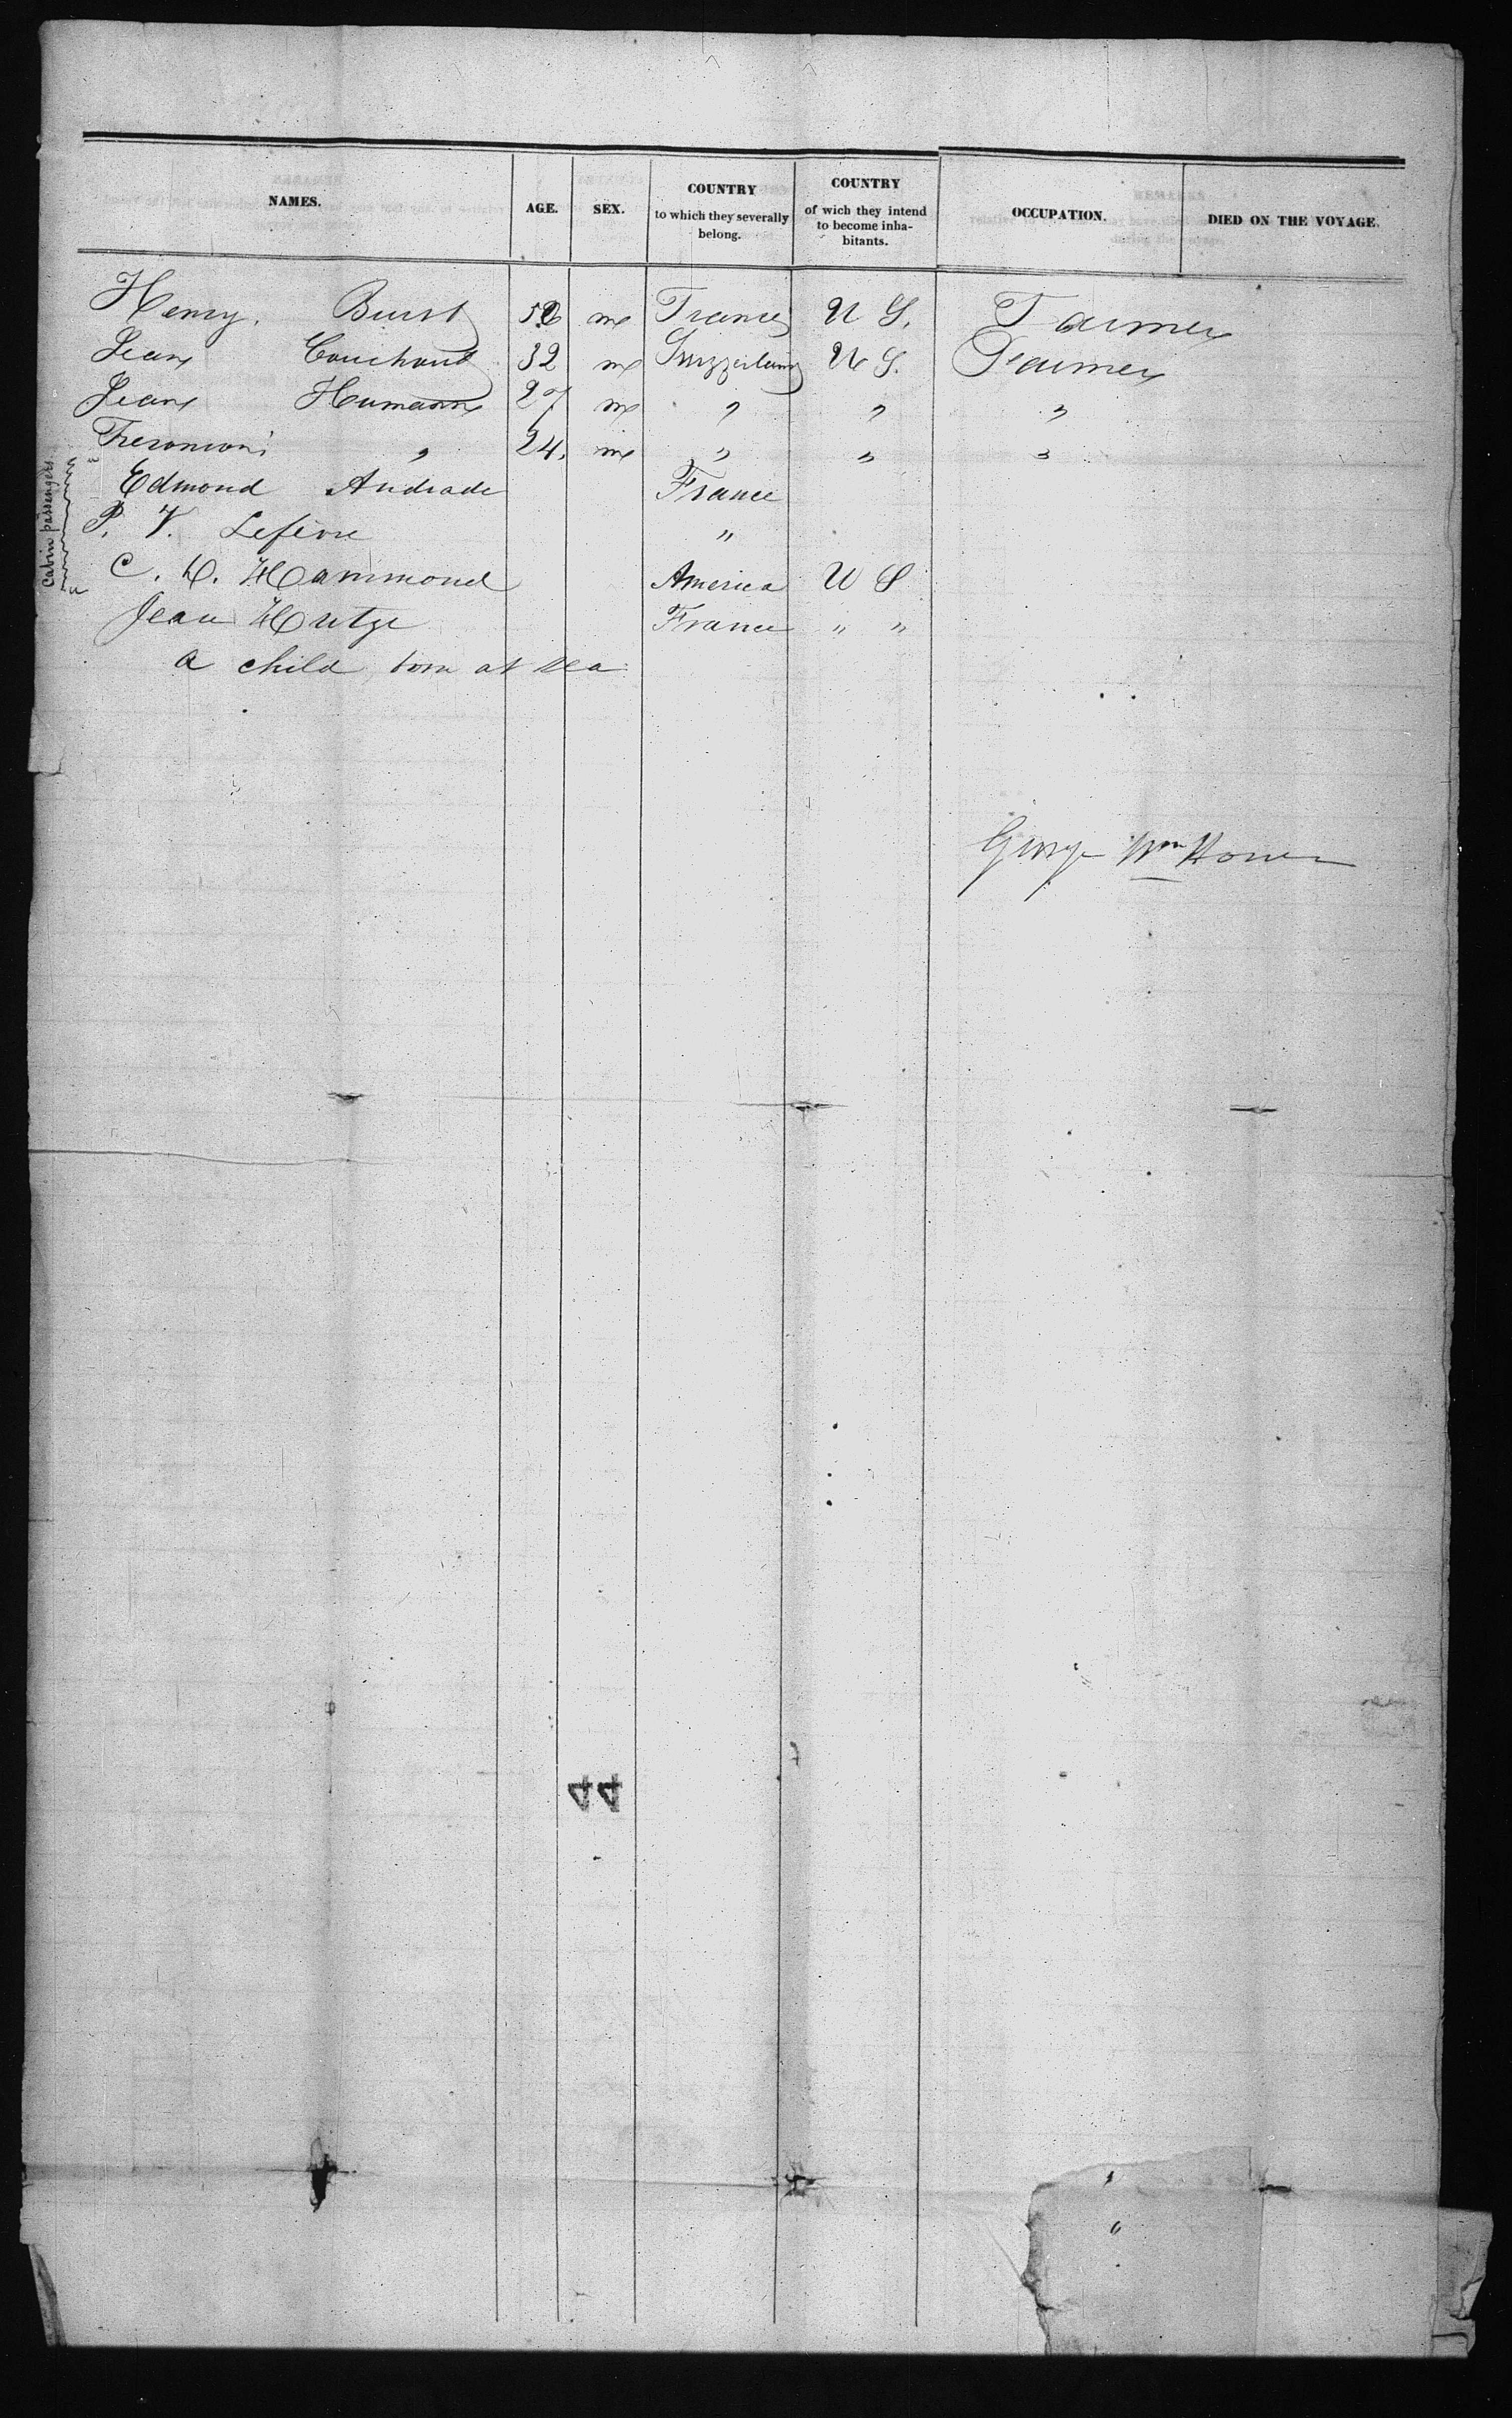 NAMES. AGE. SEX. COUNTRY to which they severally belong. COUNTRY of wich they intend to become inhabitants. OCCUPATION. DIED ON THE VOYAGE.
Henry. Burst m France U S. Farmer
Jean Couchoud 32 m Swizzerland U S. Farmer
Jean Humann 27 m " " "
" 24. m " " "
Cabin passengers
Edmond Andrade France
P. V. Lefèvre "
C. D. Hammond America U S
Jean Hutze France " "
a child born at sea
George Wm
44